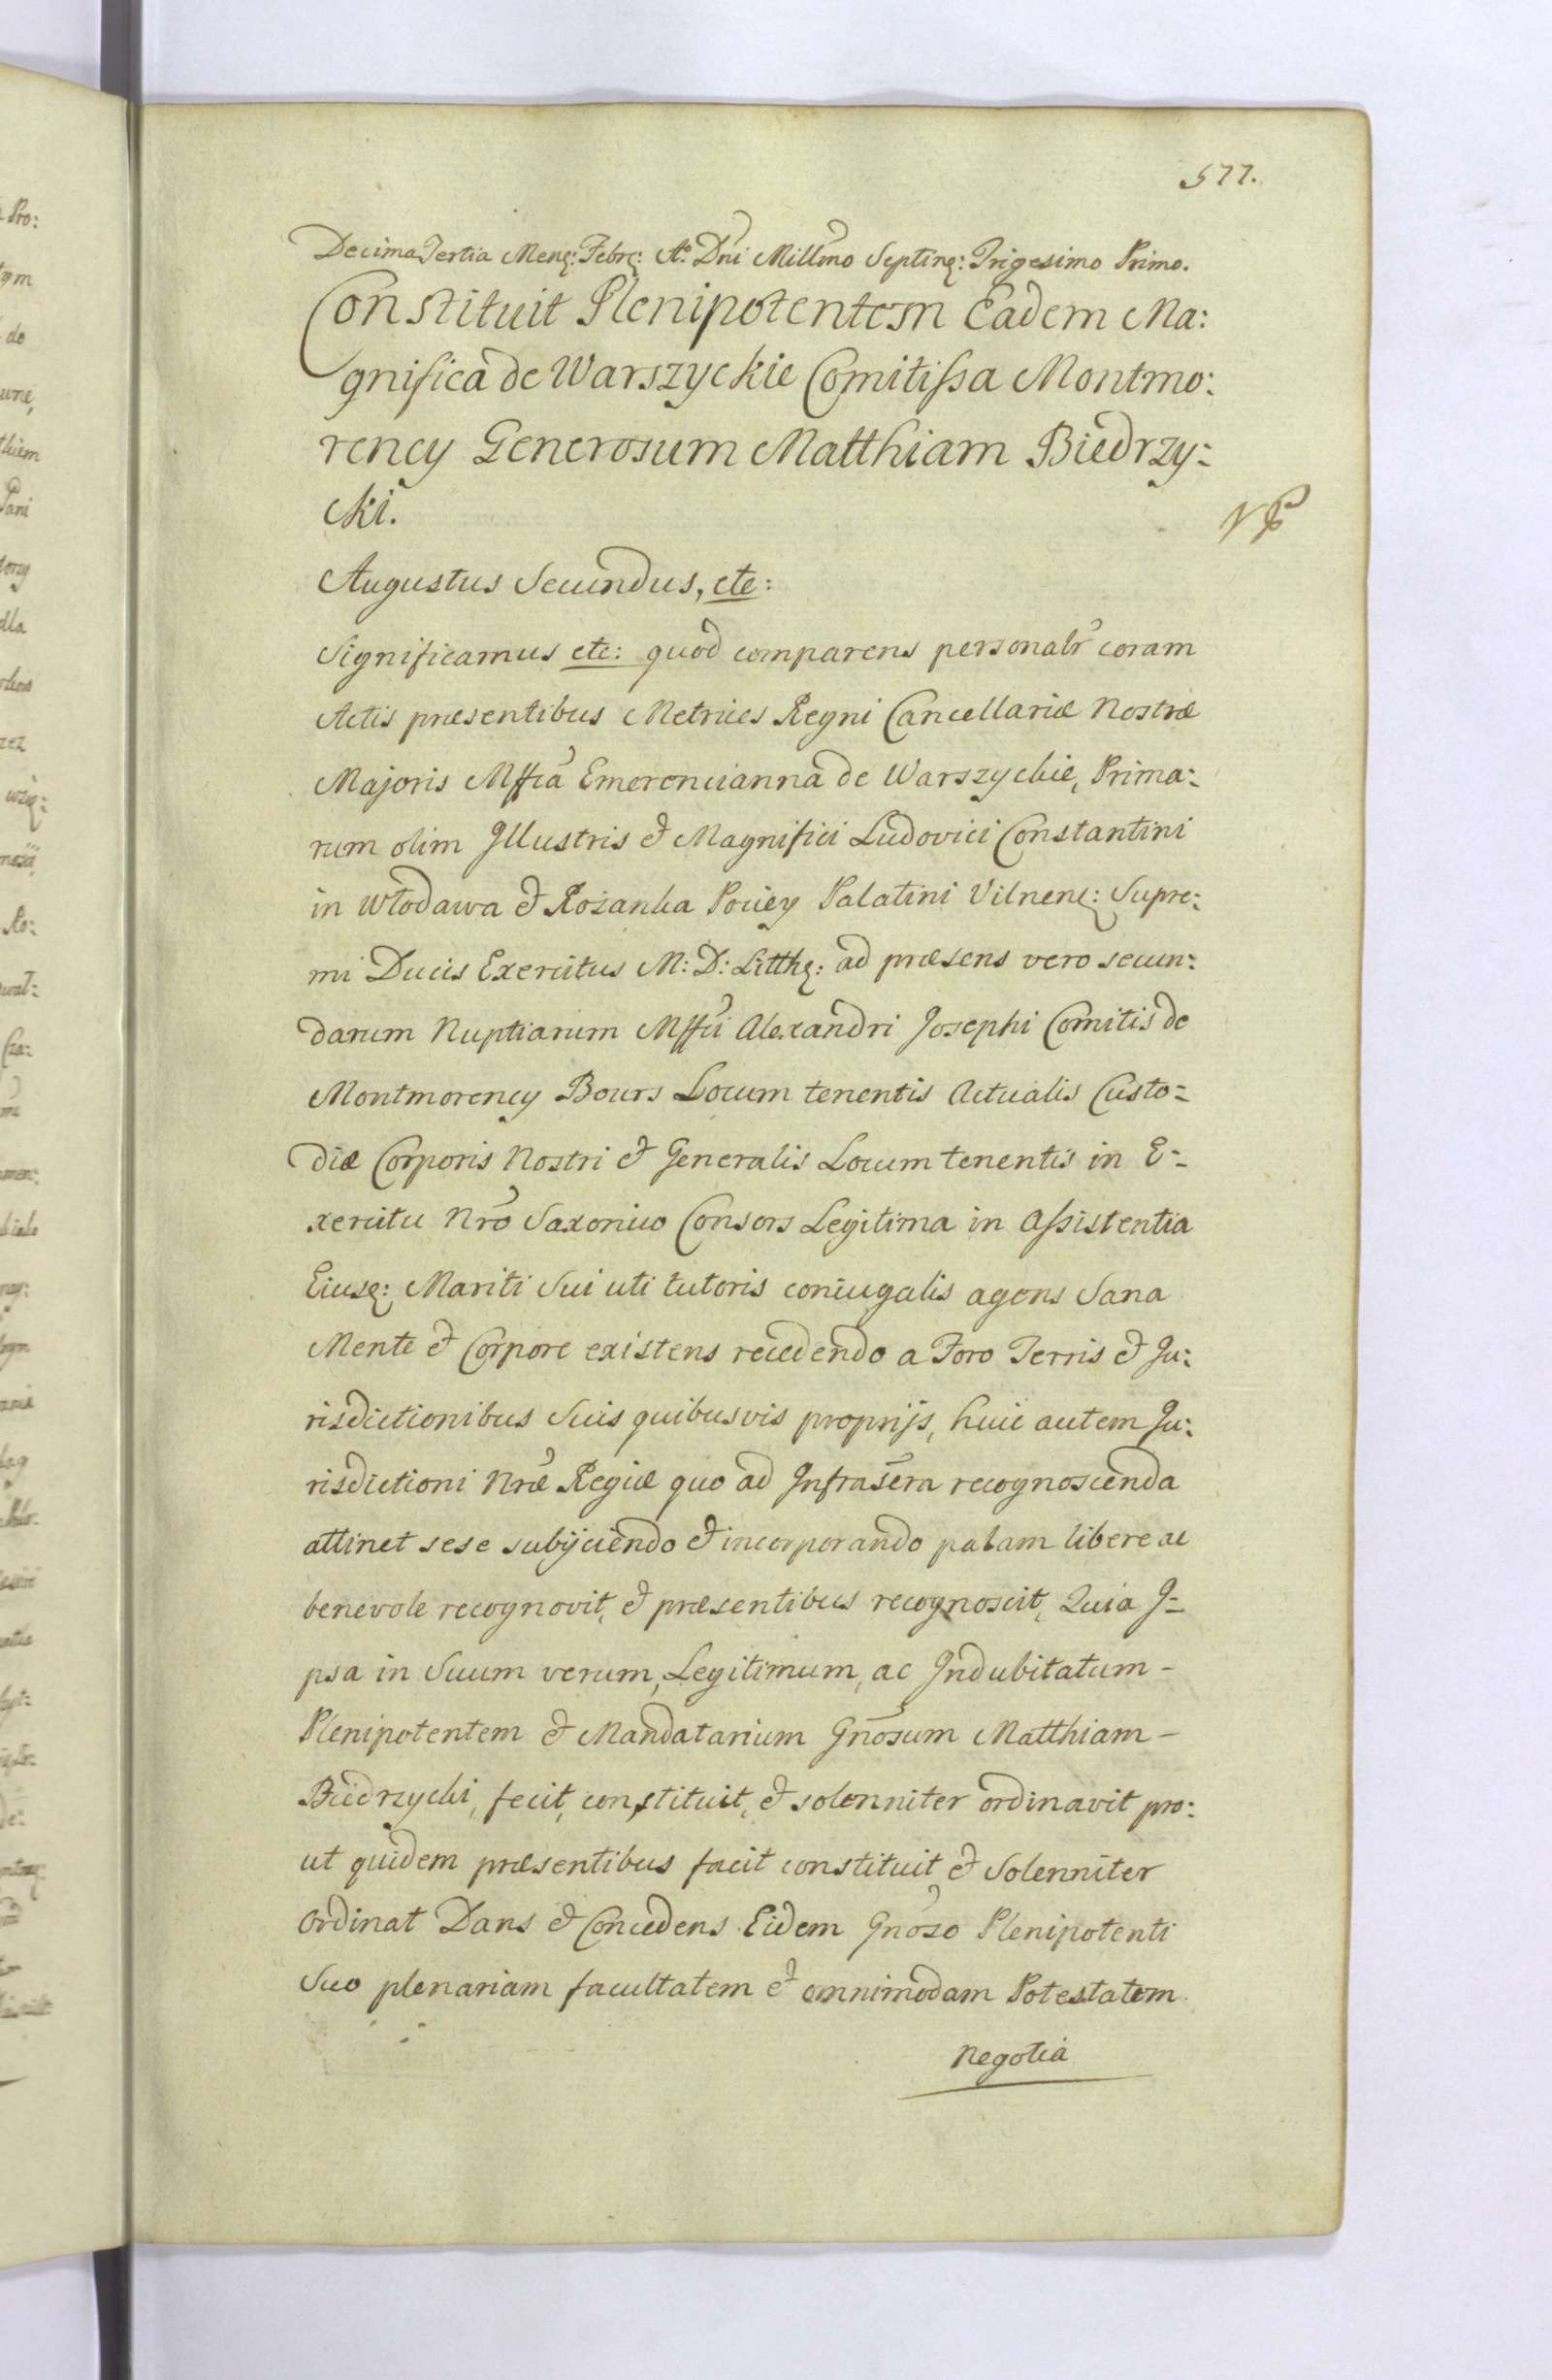 577.
Decima Tertia Mens: Febr: Ao Dni Millmo Septing: Trigesimo Primo.
Constituit Plenipotentem Eadem Ma:
gnifica de Warszyckie Comitissa Montmo:
rency Generosum Matthiam Biedrzy:
cki.
Augustus Secundus, etc:
Significamus etc: quod comparens personalr coram
Actis præsentibus Metrices Regni Cancellariæ Nostræ
Majoris Mffca Emerencianna de Warszyckie, Prima:
rum olim Jllustris & Magnifici Ludovici Constantini
in Włodawa & Rożanka Pociey Palatini Vilnens: Supre:
mi Ducis Exercitus M: D: Litth: ad præsens vero secun:
darum Nuptiarum Mffci Alexandri Josephi Comitis de
Montmorency Bours Locum tenentis Actualis Custo=
diæ Corporis Nostri & Generalis Locum tenentis in E=
xercitu Nro Saxonico Consors Legitima in Assistentia
Eiusq: Mariti Sui uti tutoris coniugalis agens Sana
Mente & Corpore existens recedendo a Foro Terris & Ju:
risdictionibus Suis quibusvis proprijs, huic autem Ju:
risdictioni Nræ Regiæ quo ad Infrascra recognoscenda
attinet sese subijciendo & incorporando palam libere ac
benevole recognovit, & præsentibus recognoscit, Quia J=
psa in Suum verum, Legitimum, ac Jndubitatum -
Plenipotentem & Mandatarium Gnosum Matthiam -
Biedrzycki, fecit, constituit, & solenniter ordinavit pro:
ut quidem præsentibus facit constituit & Solenniter
ordinat Dans & Concedens Eidem Gnoso Plenipotenti
Suo plenariam facultatem & omnimodam Potestatem
Negotia